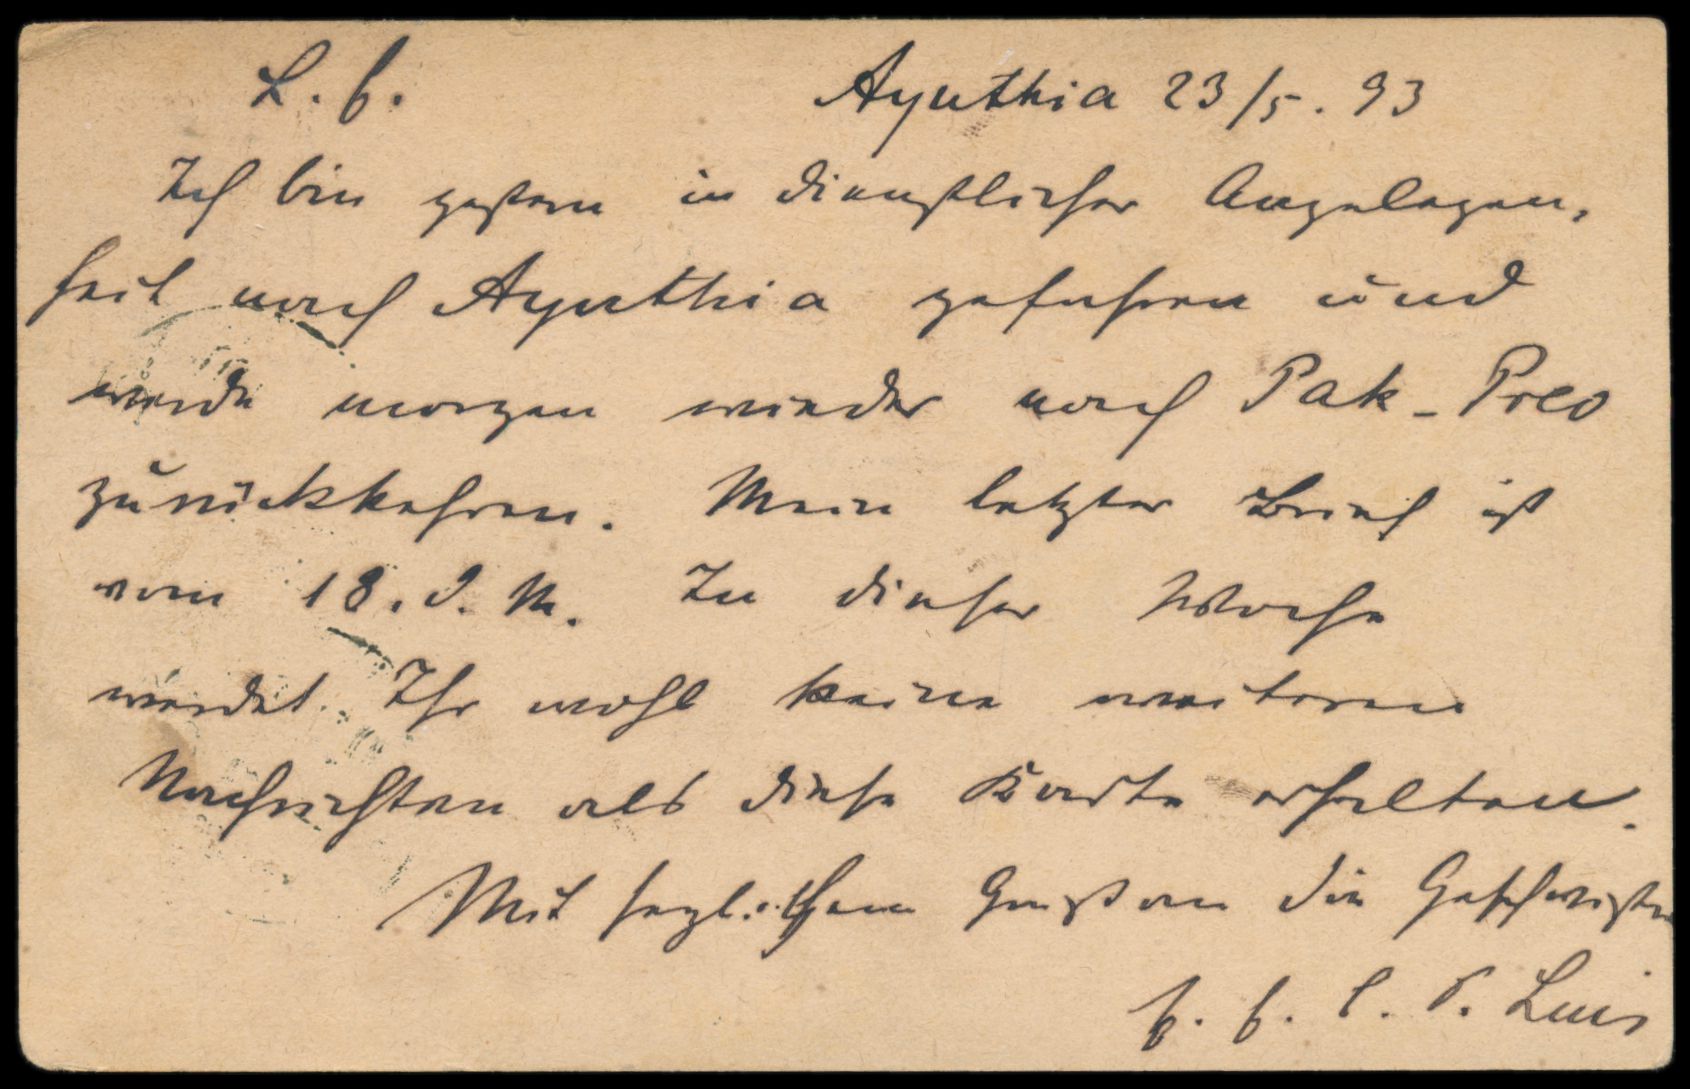 L. E. Ayuthia 23/5. 93
Ich bin gestern in dienstlicher Angelegen-
heit nach Ayuthia gefahren und
werde morgen wieder nach Pak-Preo
zurückkehren. Mein letzter Brief ist
vom 18. d. M. In dieser Woche
werdet Ihr wohl keine weiteren
Nachrichten als diese Karte erhalten.
Mit herzlichem Gruß an die Geschwister
Luis